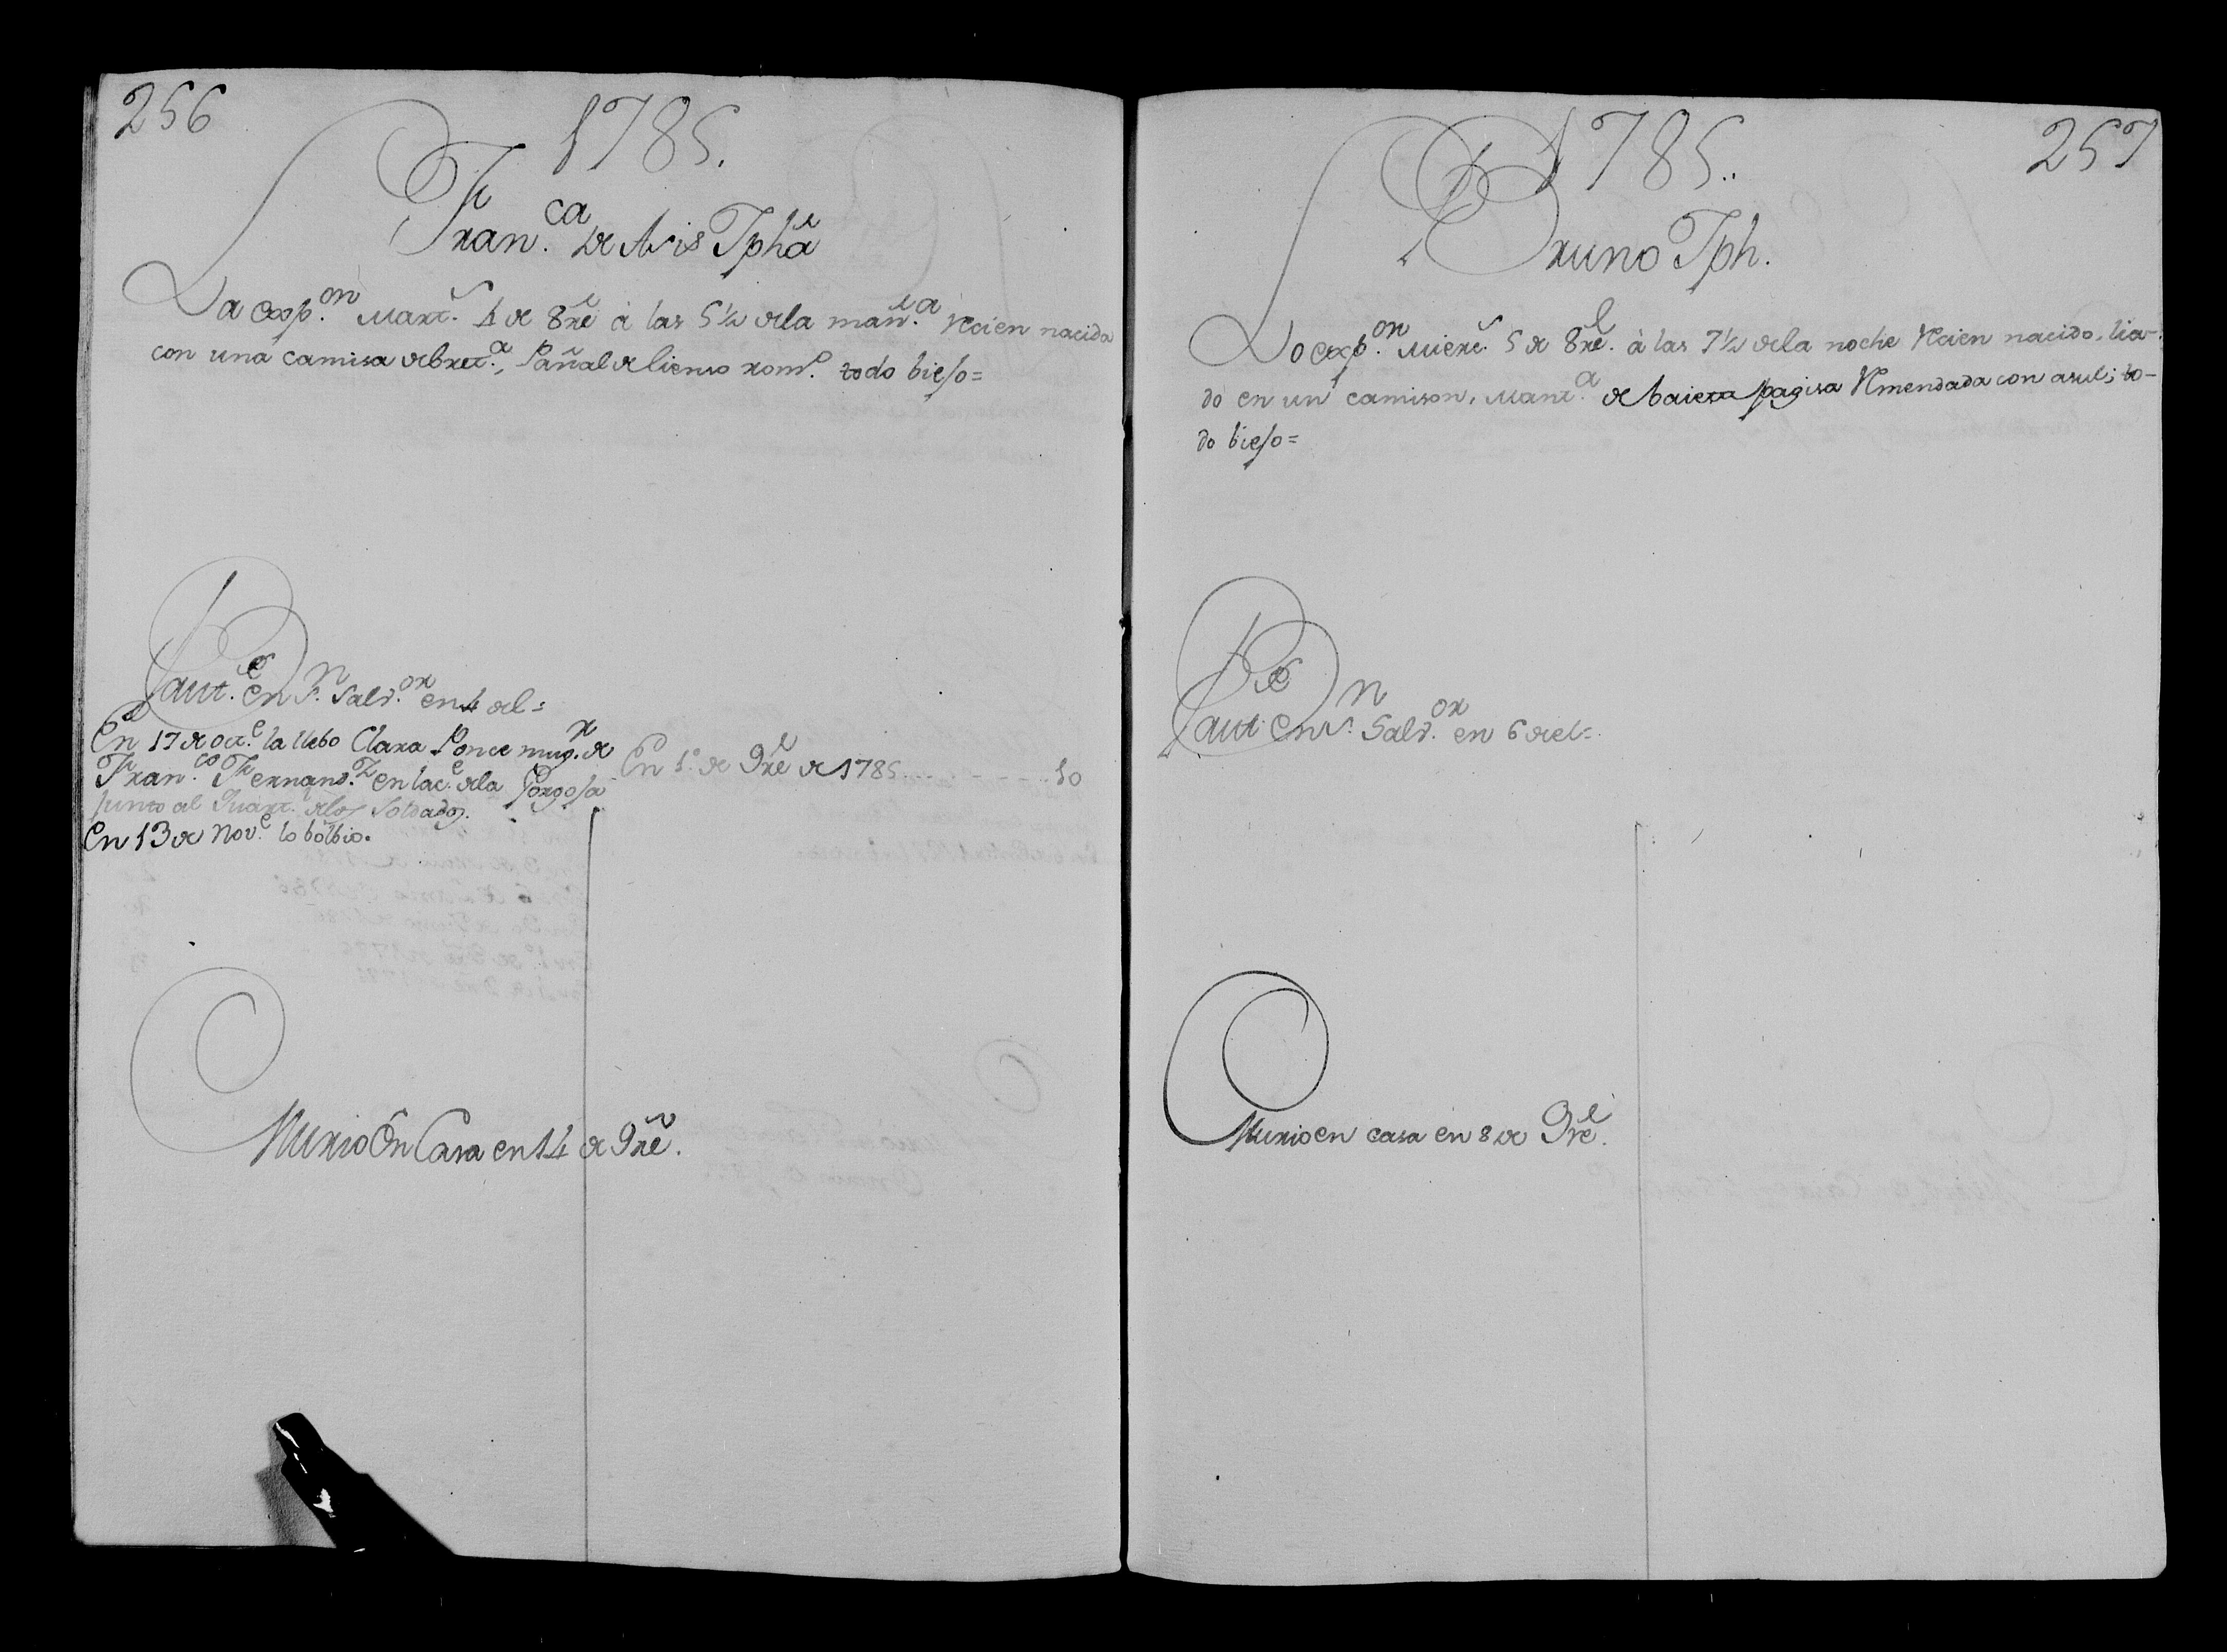 256
1785.
Fran.ca de Asis Tpha
La exp.on Mart.s 4 de 8re à las 5½ de la mañ.a Recien nacida
con una camisa de bret.a, Pañal de lienso rom.o todo biejo=
Baut.e en S.n Salv.or en 4 del=
En 17 de oct.e la llebo Clara Ponce mug.r de
Fran.co Fernand.z en la c.e de la Gorgosa
Junto al Quart.l de los Soldados.
En 13 de Nov.e lo bolbio.
En 1.o de 9re de 1785 10
Murio En Casa en 14 de 9re.
1785.
257
Bruno Tph.
Lo exp.on Mierc.s 5 de 8re. à las 7½ de la noche Recien nacido, lia-
do en un camison, Mant.a de baieta pagisa Remendada con asul; to-
do biejo=
Baut.e en S.n Salv.or en 6 del=
Murio en casa en 8 de 9re.